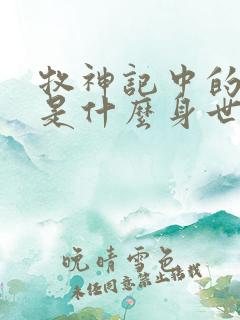 牧神記中的
是什麼身世
晚晴雪色
未經同意禁止搭載